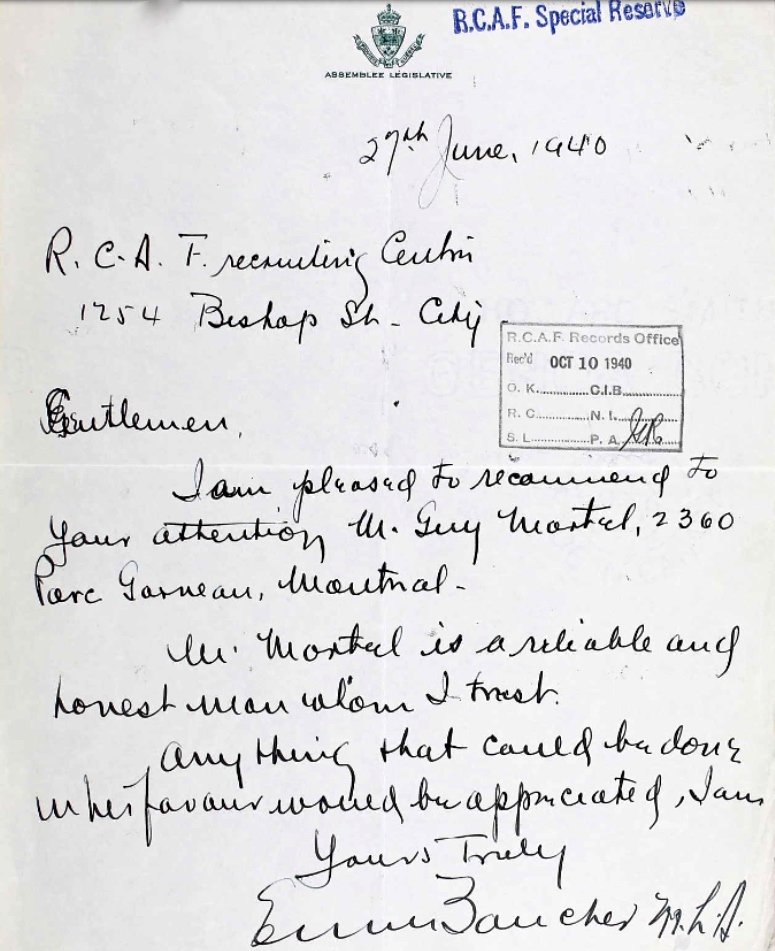 R.C.A.F. Special Reserve
ASSEMBLEE LEGISLATIVE
27th June, 1940
R. C. A. F. recruiting Centre
1254 Bishop St - City
R.C.A.F. Records Office
Rec'd OCT 10 1940
O. K. C.I.B.
R. C. N. I.
S. L. P. A.
Gentlemen,
I am pleased to recommend to
your attention M. Guy Martel, 2360
Parc Garneau, Montreal -
M. Martel is a reliable and
honest man whom I trust.
Anything that could be done
in his favour would be appreciated, I am
Yours Truly
M.L.A.